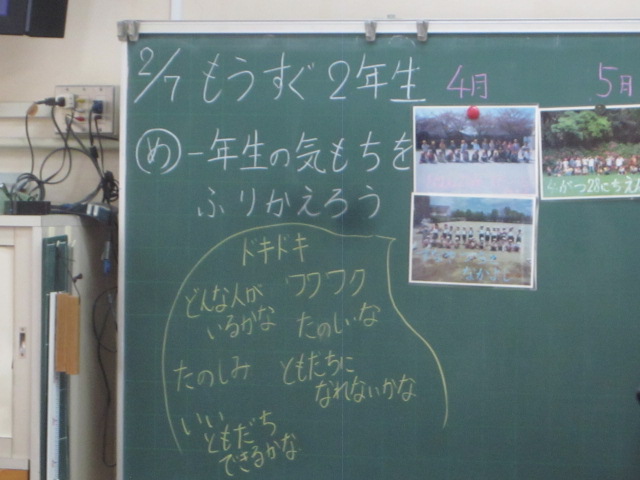 2/7 もうすぐ2年生
め 一年生の気もちを
ふりかえろう
4月
5月
ドキドキ
どんな人が
いるかな
ワクワク
たのしいな
たのしみ
ともだちに
なれないかな
いい
ともだち
できるかな
なかよし